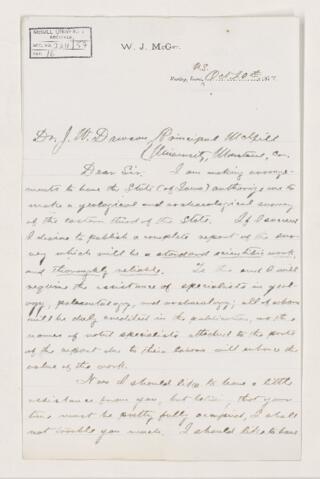 McGILL UNIVERSITY
ARCHIVES
ACC. NO.
REF. 16
W. J. McGee.
U.S.
Farley, Iowa, Oct 20th, 187
Dr. J. W. Dawson, Principal McGill
University, Montreal, Can.
Dear Sir: I am making arrange-
ments to have the State (of Iowa) authorize me to
make a geological and archaeological survey
of the eastern third of the State. If I succeed
I desire to publish a complete report of the sur-
vey which will be a standard scientific work,
and thoroughly reliable. To this end I will
require the assistance of specialists in geol-
ogy, palaeontology, and archaeology; all of whom
will be duly credited in the publication, as the
names of noted specialists attached to the parts
of the report due to their labors will enhance the
value of the work.
Now I should like to have a little
assistance from you, but knowing that your
time must be pretty fully occupied, I shall
not trouble you much. I should like to have